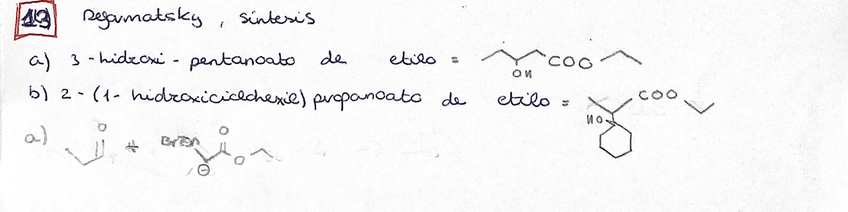 13 Reformatsky, síntesis
a) 3-hidroxi-pentanoato de etilo = OH COO
b) 2-(1-hidroxiciclohexil) propanoato de etilo = COO HO
a) O + BrZn O O ⊖